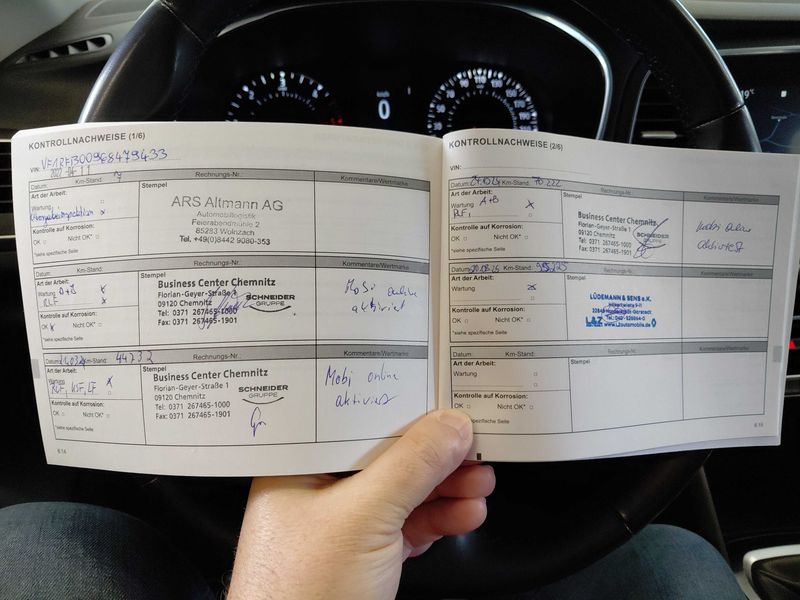 KONTROLLNACHWEISE (1/6)
VIN:
Datum: Km-Stand: 7 Rechnungs-Nr.: Kommentare/Wertmarke
Art der Arbeit: Stempel
Wartung
Kontrolle auf Korrosion:
OK Nicht OK*
*siehe spezifische Seite
ARS Altmann AG
Automobillogistik
Feierabendmühle 2
85283 Wolnzach
Tel. +49(0)8442 9080-353
Rechnungs-Nr.: Kommentare/Wertmarke
Art der Arbeit: Stempel
Wartung A+B x
RLF x
Kontrolle auf Korrosion:
OK x Nicht OK*
*siehe spezifische Seite
Business Center Chemnitz
Florian-Geyer-Straße 1
09120 Chemnitz
Tel: 0371 267465-1000
Fax: 0371 267465-1901
SCHNEIDER
GRUPPE
Mobi online
aktiviert
Datum: Km-Stand: 44732 Rechnungs-Nr.: Kommentare/Wertmarke
Art der Arbeit: Stempel
Wartung x
Kontrolle auf Korrosion:
OK Nicht OK*
*siehe spezifische Seite
Business Center Chemnitz
Florian-Geyer-Straße 1
09120 Chemnitz
Tel: 0371 267465-1000
Fax: 0371 267465-1901
SCHNEIDER
GRUPPE
Mobi online
aktiviert
6.14
KONTROLLNACHWEISE (2/6)
VIN:
Datum: Km-Stand: 70222 Rechnungs-Nr.: Kommentare/Wertmarke
Art der Arbeit: Stempel
Wartung A+B x
Kontrolle auf Korrosion:
OK Nicht OK*
*siehe spezifische Seite
Business Center Chemnitz
Florian-Geyer-Straße 1
09120 Chemnitz
Tel: 0371 267465-1000
Fax: 0371 267465-1901
SCHNEIDER
GRUPPE
Mobi online
aktiviert
Datum: Km-Stand: Rechnungs-Nr.: Kommentare/Wertmarke
Art der Arbeit: Stempel
Wartung x
Kontrolle auf Korrosion:
OK Nicht OK*
*siehe spezifische Seite
LÜDEMANN & SENS e.K.
LAZ
Datum: Km-Stand: Rechnungs-Nr.: Kommentare/Wertmarke
Art der Arbeit: Stempel
Wartung
Kontrolle auf Korrosion:
OK Nicht OK*
spezifische Seite
6.15
0